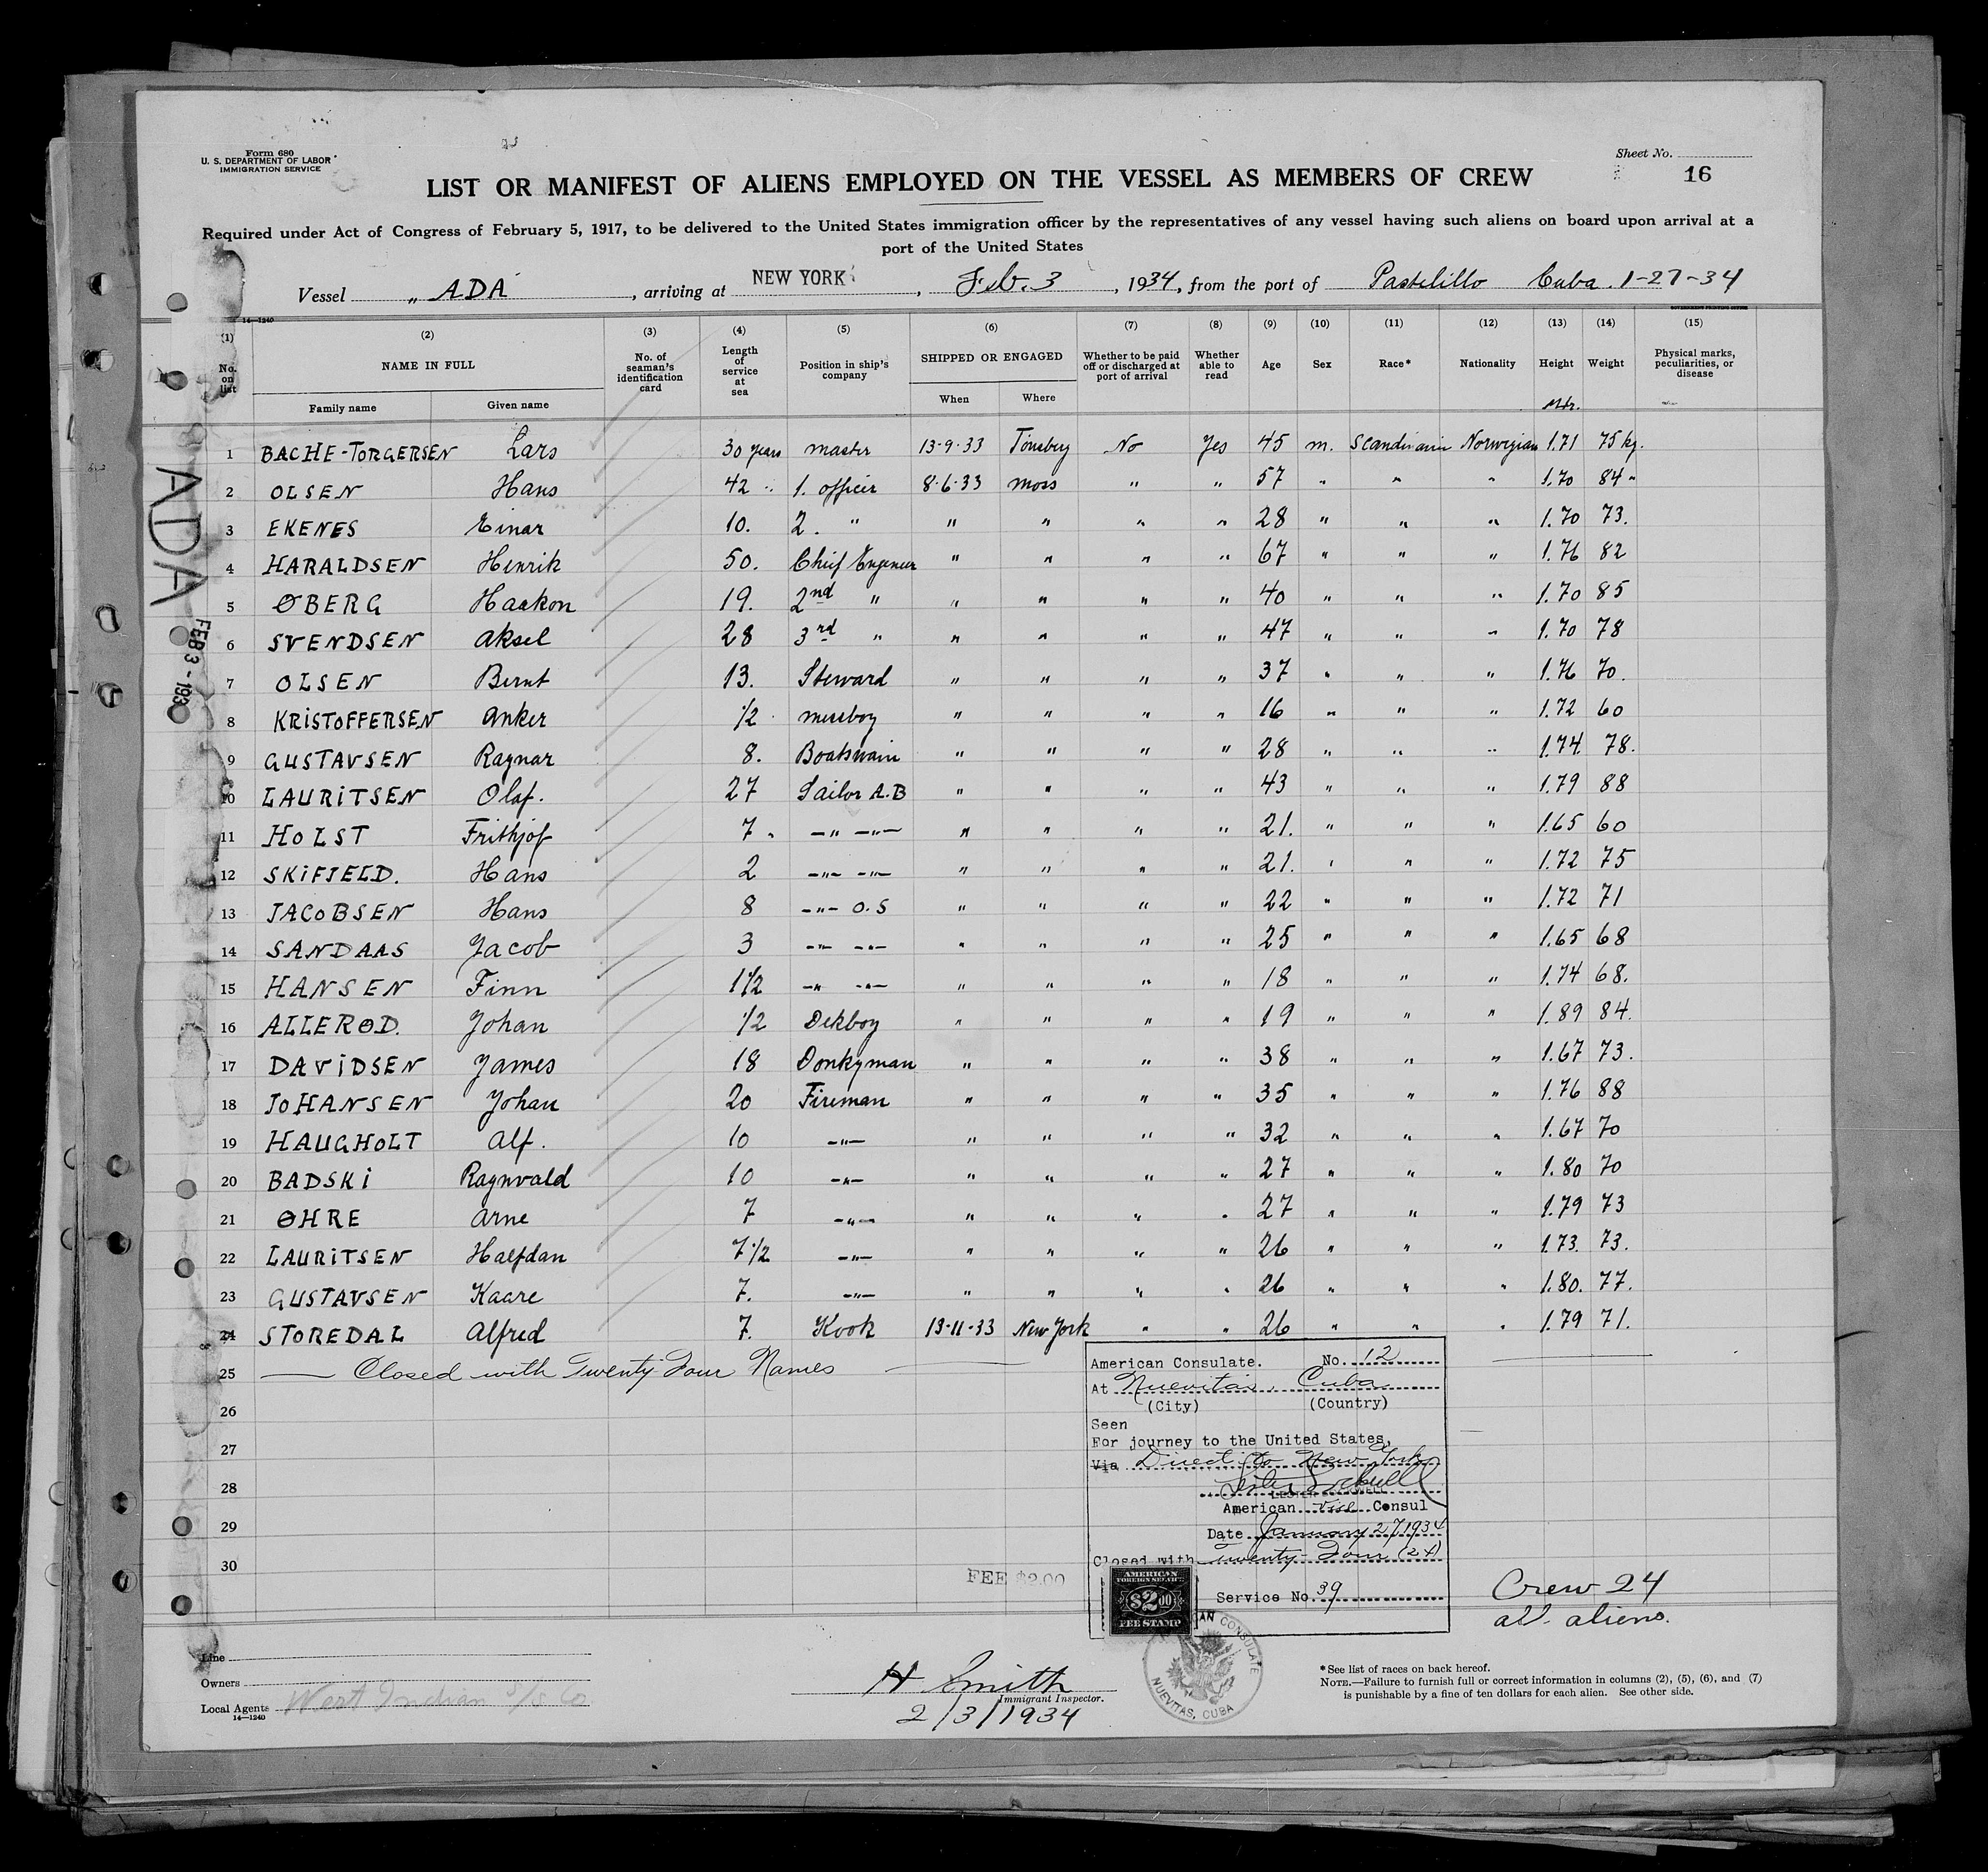 Form 680
U. S. DEPARTMENT OF LABOR
IMMIGRATION SERVICE
Sheet No.
16
LIST OR MANIFEST OF ALIENS EMPLOYED ON THE VESSEL AS MEMBERS OF CREW
Required under Act of Congress of February 5, 1917, to be delivered to the United States immigration officer by the representatives of any vessel having such aliens on board upon arrival at a
port of the United States
Vessel „ ADA , arriving at NEW YORK , Feb. 3 , 1934, from the port of Pastelillo Cuba. 1-27-34
14—1240
(1) (2) (3) (4) (5) (6) (7) (8) (9) (10) (11) (12) (13) (14) (15)
No. on list NAME IN FULL No. of seaman's identification card Length of service at sea Position in ship's company SHIPPED OR ENGAGED Whether to be paid off or discharged at port of arrival Whether able to read Age Sex Race* Nationality Height Weight Physical marks, peculiarities, or disease
Family name Given name When Where Mtr.
1 BACHE-TORGERSEN Lars 30 years master 13-9-33 Tönsberg No Yes 45 m. Scandinavin Norwegian 1.71 75 kg.
2 OLSEN Hans 42 " 1. officer 8-6-33 moss " " 57 " " " 1.70 84 "
3 EKENES Einar 10. 2. " " " " " 28 " " " 1.70 73.
4 HARALDSEN Henrik 50. Chief Engineer " " " " 67 " " " 1.76 82
5 ØBERG Haakon 19. 2nd " " " " " 40 " " " 1.70 85
6 SVENDSEN Aksel 28 3rd " " " " " 47 " " " 1.70 78
7 OLSEN Bernt 13. Steward " " " " 37 " " " 1.76 70.
8 KRISTOFFERSEN Anker 1/2 messboy " " " " 16 " " " 1.72 60
9 GUSTAVSEN Ragnar 8. Boatswain " " " " 28 " " " 1.74 78.
10 LAURITSEN Olaf. 27 Sailor A.B " " " " 43 " " " 1.79 88
11 HOLST Frithjof 7. -"- -"- " " " " 21. " " " 1.65 60
12 SKIFJELD. Hans 2 -"- -"- " " " " 21. " " " 1.72 75
13 JACOBSEN Hans 8 -"- O.S " " " " 22 " " " 1.72 71
14 SANDAAS Jacob 3 -"- -"- " " " " 25 " " " 1.65 68
15 HANSEN Finn 1 1/2 -"- -"- " " " " 18 " " " 1.74 68.
16 ALLERØD. Johan 1/2 Dekboy " " " " 19 " " " 1.89 84.
17 DAVIDSEN James 18 Donkyman " " " " 38 " " " 1.67 73.
18 JOHANSEN Johan 20 Fireman " " " " 35 " " " 1.76 88
19 HAUGHOLT Alf. 10 -"- " " " " 32 " " " 1.67 70
20 BADSKI Ragnvald 10 -"- " " " " 27 " " " 1.80 70
21 ØHRE Arne 7 -"- " " " " 27 " " " 1.79 73
22 LAURITSEN Halfdan 7 1/2 -"- " " " " 26 " " " 1.73. 73.
23 GUSTAVSEN Kaare 7. -"- " " " " 26 " " " 1.80. 77.
24 STOREDAL Alfred 7. Kook 13-11-33 New York " " 26 " " " 1.79 71.
25 Closed with Twenty Four Names
26
27
28
29
30
ADA
FEB 3 - 193
American Consulate. No. 12
At Nuevitas, Cuba
(City) (Country)
Seen
For journey to the United States,
Via Direct to New York
American Vice Consul
Date January 27 1934
Closed with Twenty-Four (24)
FEE $2.00
AMERICAN
FOREIGN SERVICE
$2.00
FEE STAMP
Service No. 39
Crew 24
all aliens.
AMERICAN CONSULATE
NUEVITAS, CUBA
Line
Owners
Local Agents West Indian S/S Co
14—1240
H Smith
Immigrant Inspector.
2/3/1934
*See list of races on back hereof.
NOTE.—Failure to furnish full or correct information in columns (2), (5), (6), and (7)
is punishable by a fine of ten dollars for each alien. See other side.